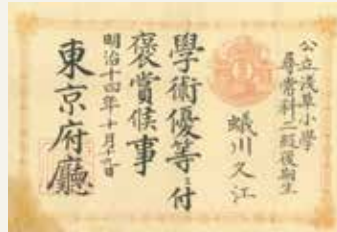 公立浅草小學
尋常科二級後期生
蟻川久江
學術優等ニ付
褒賞候事
明治十四年十月十五日
東京府廳